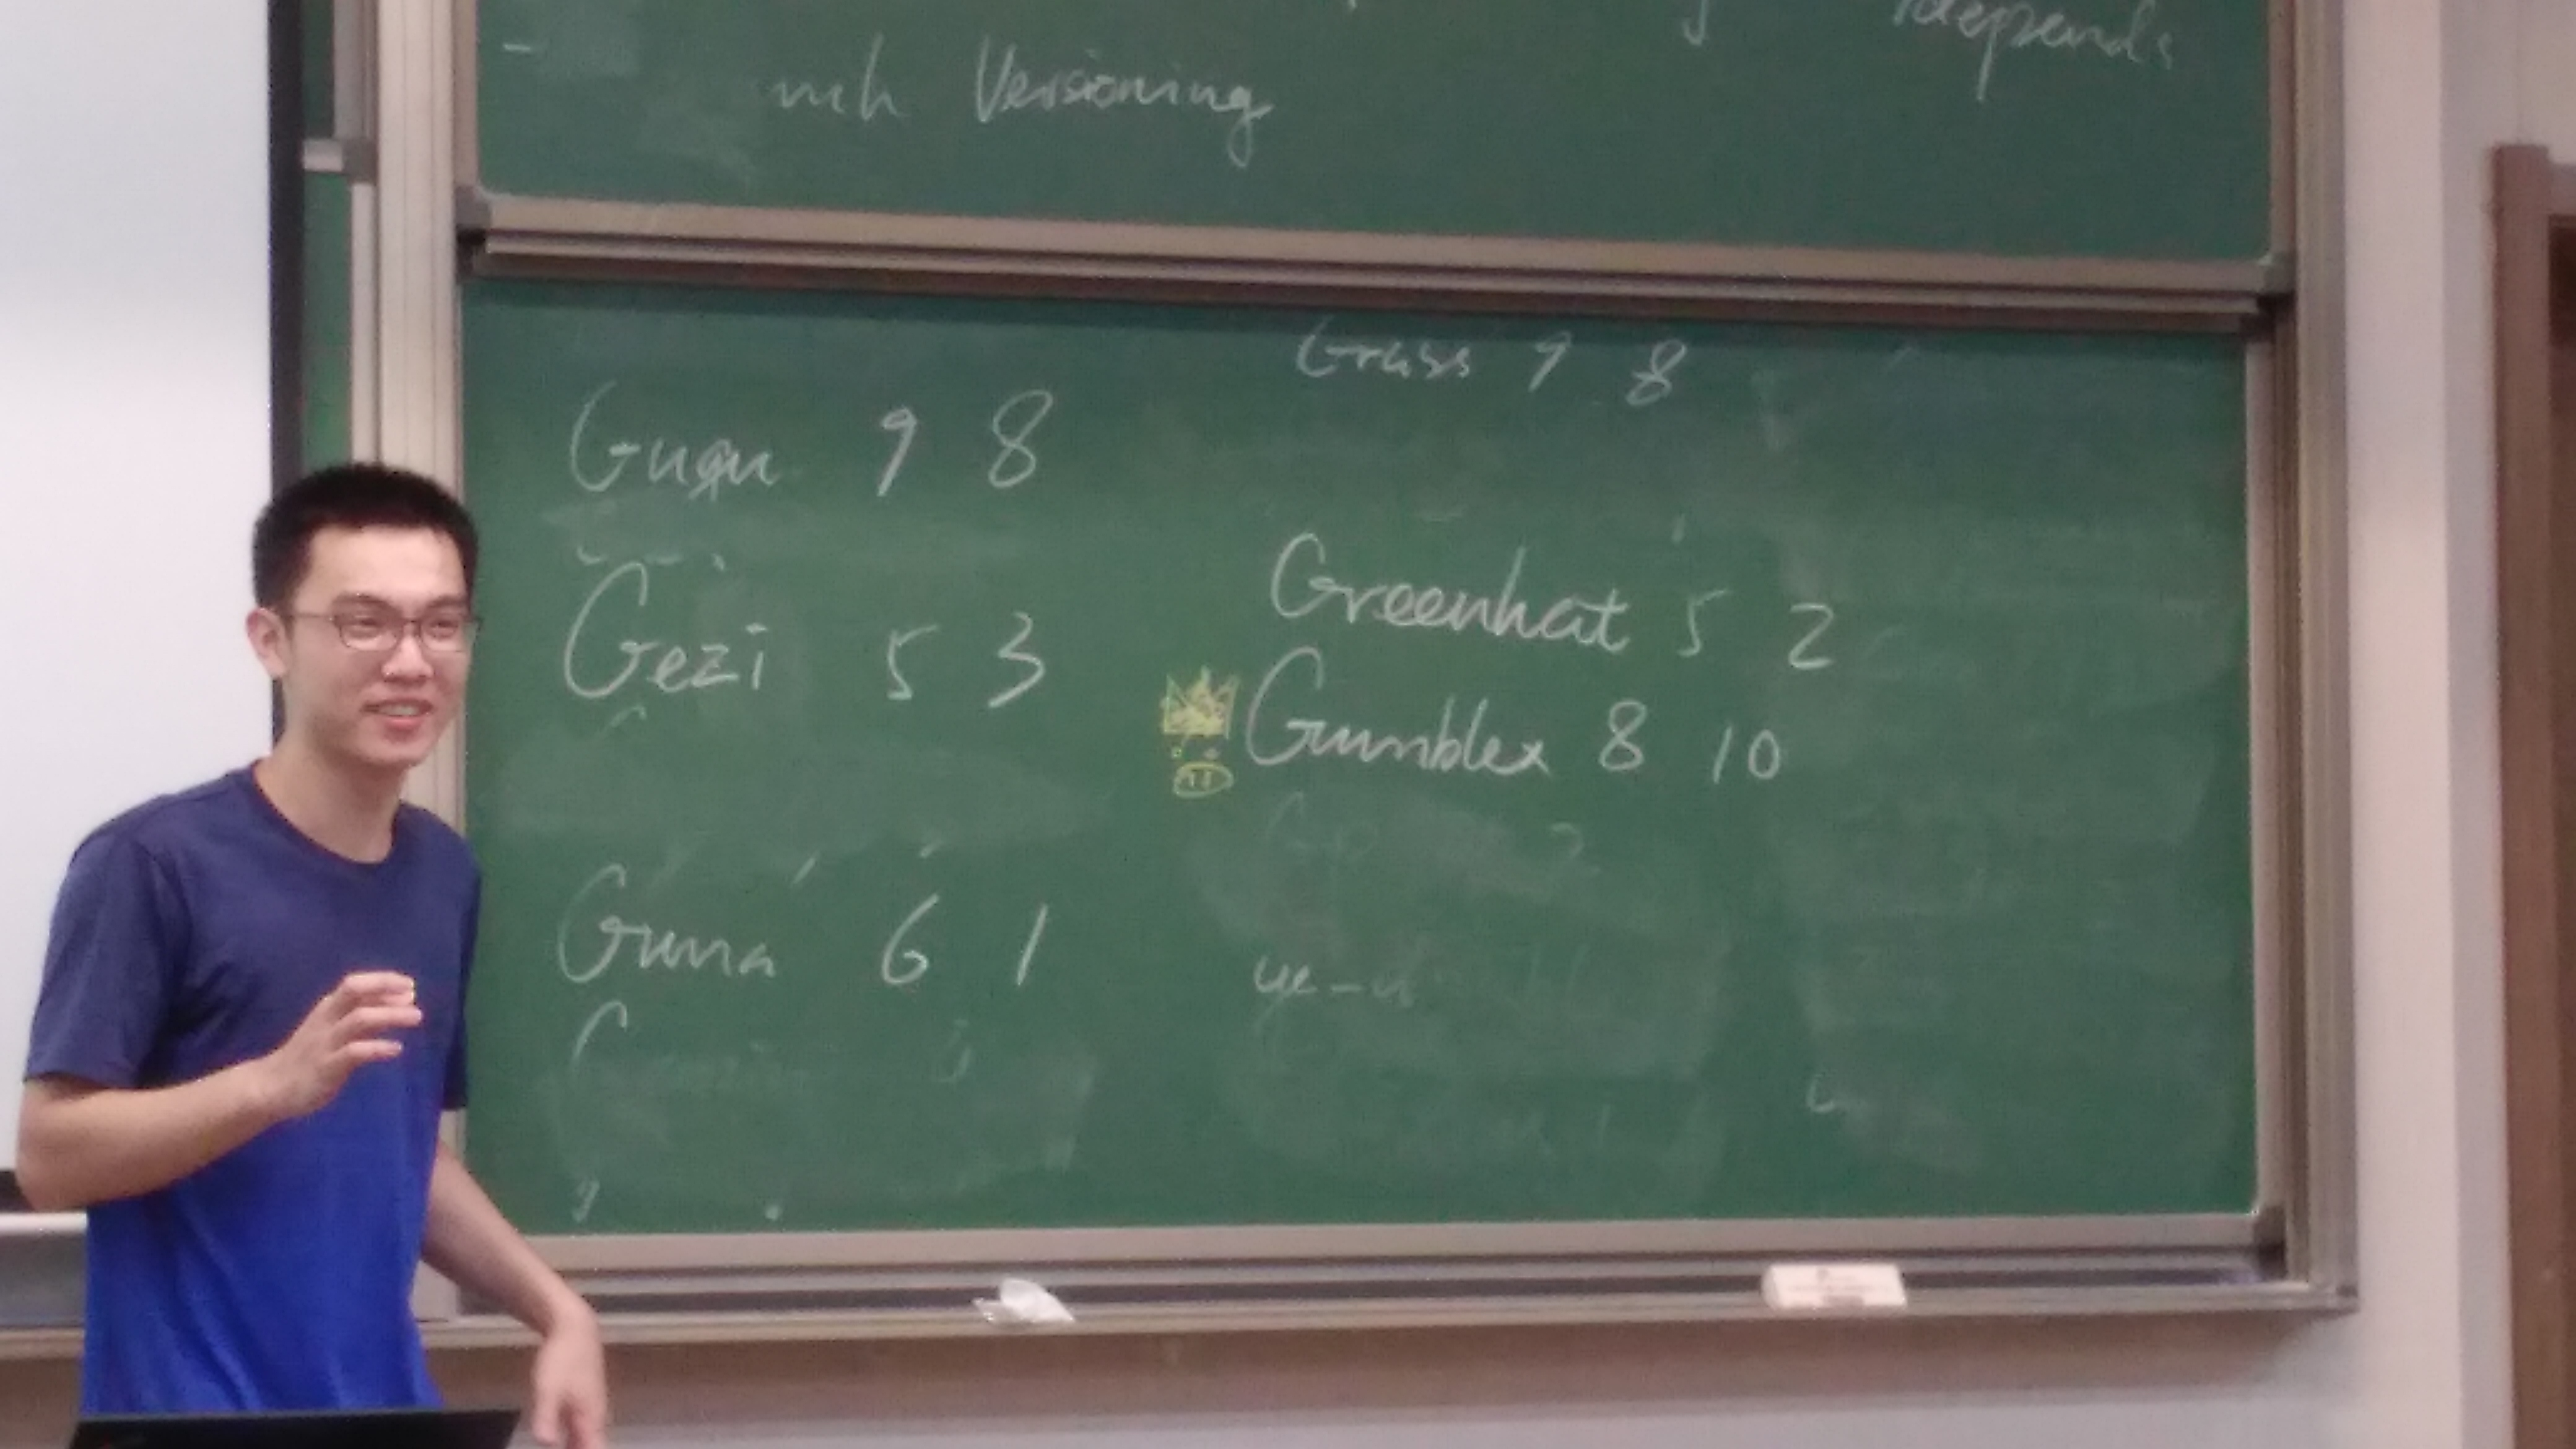 depends
Versioning
Gugu 9 8
Gezi 5 3
Guna 6 1
Grass 9 8
Greenhat 5 2
Gumblex 8 10